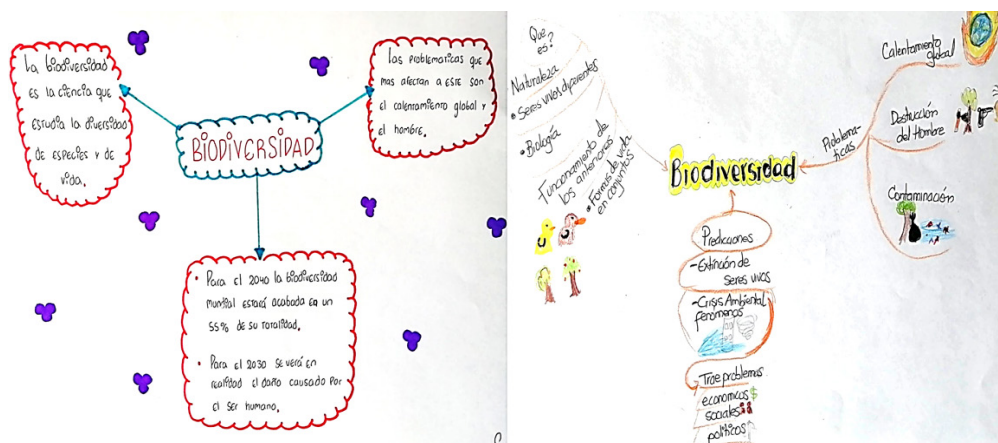 La biodiversidad
es la ciencia que
estudia la diversidad
de especies y de
vida.
Las problematicas que
mas afectan a este son
el calentamiento global y
el hombre.
BIODIVERSIDAD
• Para el 2040 la biodiversidad
mundial estará acabada en un
55% de su totalidad.
• Para el 2030 se verá en
realidad el daño causado por
el ser humano.
Que
es?
Naturaleza
• Seres vivos diferentes
• Biología
Funcionamiento de
los anteriores
• Formas de vida
en conjuntos
Biodiversidad
Problema-
ticas
Calentamiento
global
Destrucción
del Hombre
Contaminación
Predicciones
-Extinción de
seres vivos
-Crisis Ambiental
fenomenos
Trae problemas
economicos $
sociales
politicos